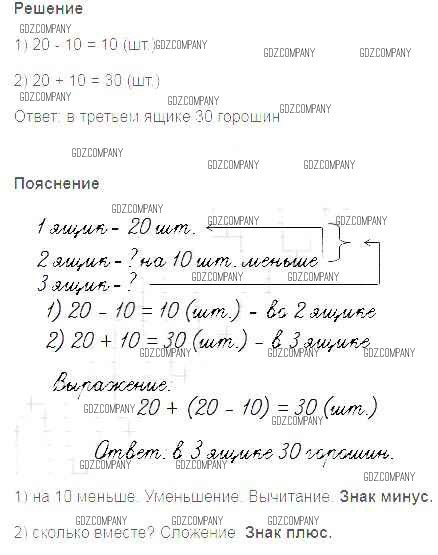 Решение
GDZCOMPANY
1) 20 - 10 = 10 (шт.) GDZCOMPANY
GDZCOMPANY GDZCOMPANY
2) 20 + 10 = 30 (шт.)
GDZCOMPANY GDZCOMPANY GDZCOMPANY
Ответ: в третьем ящике 30 горошин
GDZCOMPANY
GDZCOMPANY GDZCOMPANY
Пояснение
GDZCOMPANY
GDZCOMPANY GDZCOMPANY
1 ящик - 20 шт.
2 ящик - ? на 10 шт. меньше
GDZCOMPANY GDZCOMPANY
3 ящик - ?
1) 20 - 10 = 10 (шт.) - во 2 ящике
2) 20 + 10 = 30 (шт.) - в 3 ящике
GDZCOMPANY GDZCOMPANY GDZCOMPANY
Выражение:
GDZCOMPANY 20 + (20 - 10) = 30 (шт.)
GDZCOMPANY
Ответ: в 3 ящике 30 горошин.
GDZCOMPANY GDZCOMPANY GDZCOMPANY
GDZCOMPANY
1) на 10 меньше. Уменьшение. Вычитание. Знак минус.
GDZCOMPANY GDZCOMPANY GDZCOMPANY
2) сколько вместе? Сложение. Знак плюс.